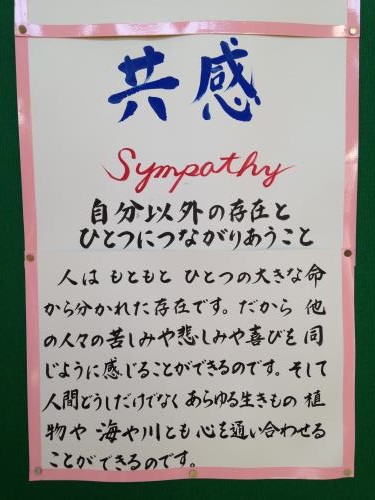 共感
Sympathy
自分以外の存在と
ひとつにつながりあうこと
人は もともと ひとつの大きな命
から分かれた存在です。だから 他
の人々の苦しみや悲しみや喜びを同
じように感じることができるのです。そして
人間どうしだけでなく あらゆる生きもの 植
物や 海や川とも 心を通い合わせる
ことができるのです。